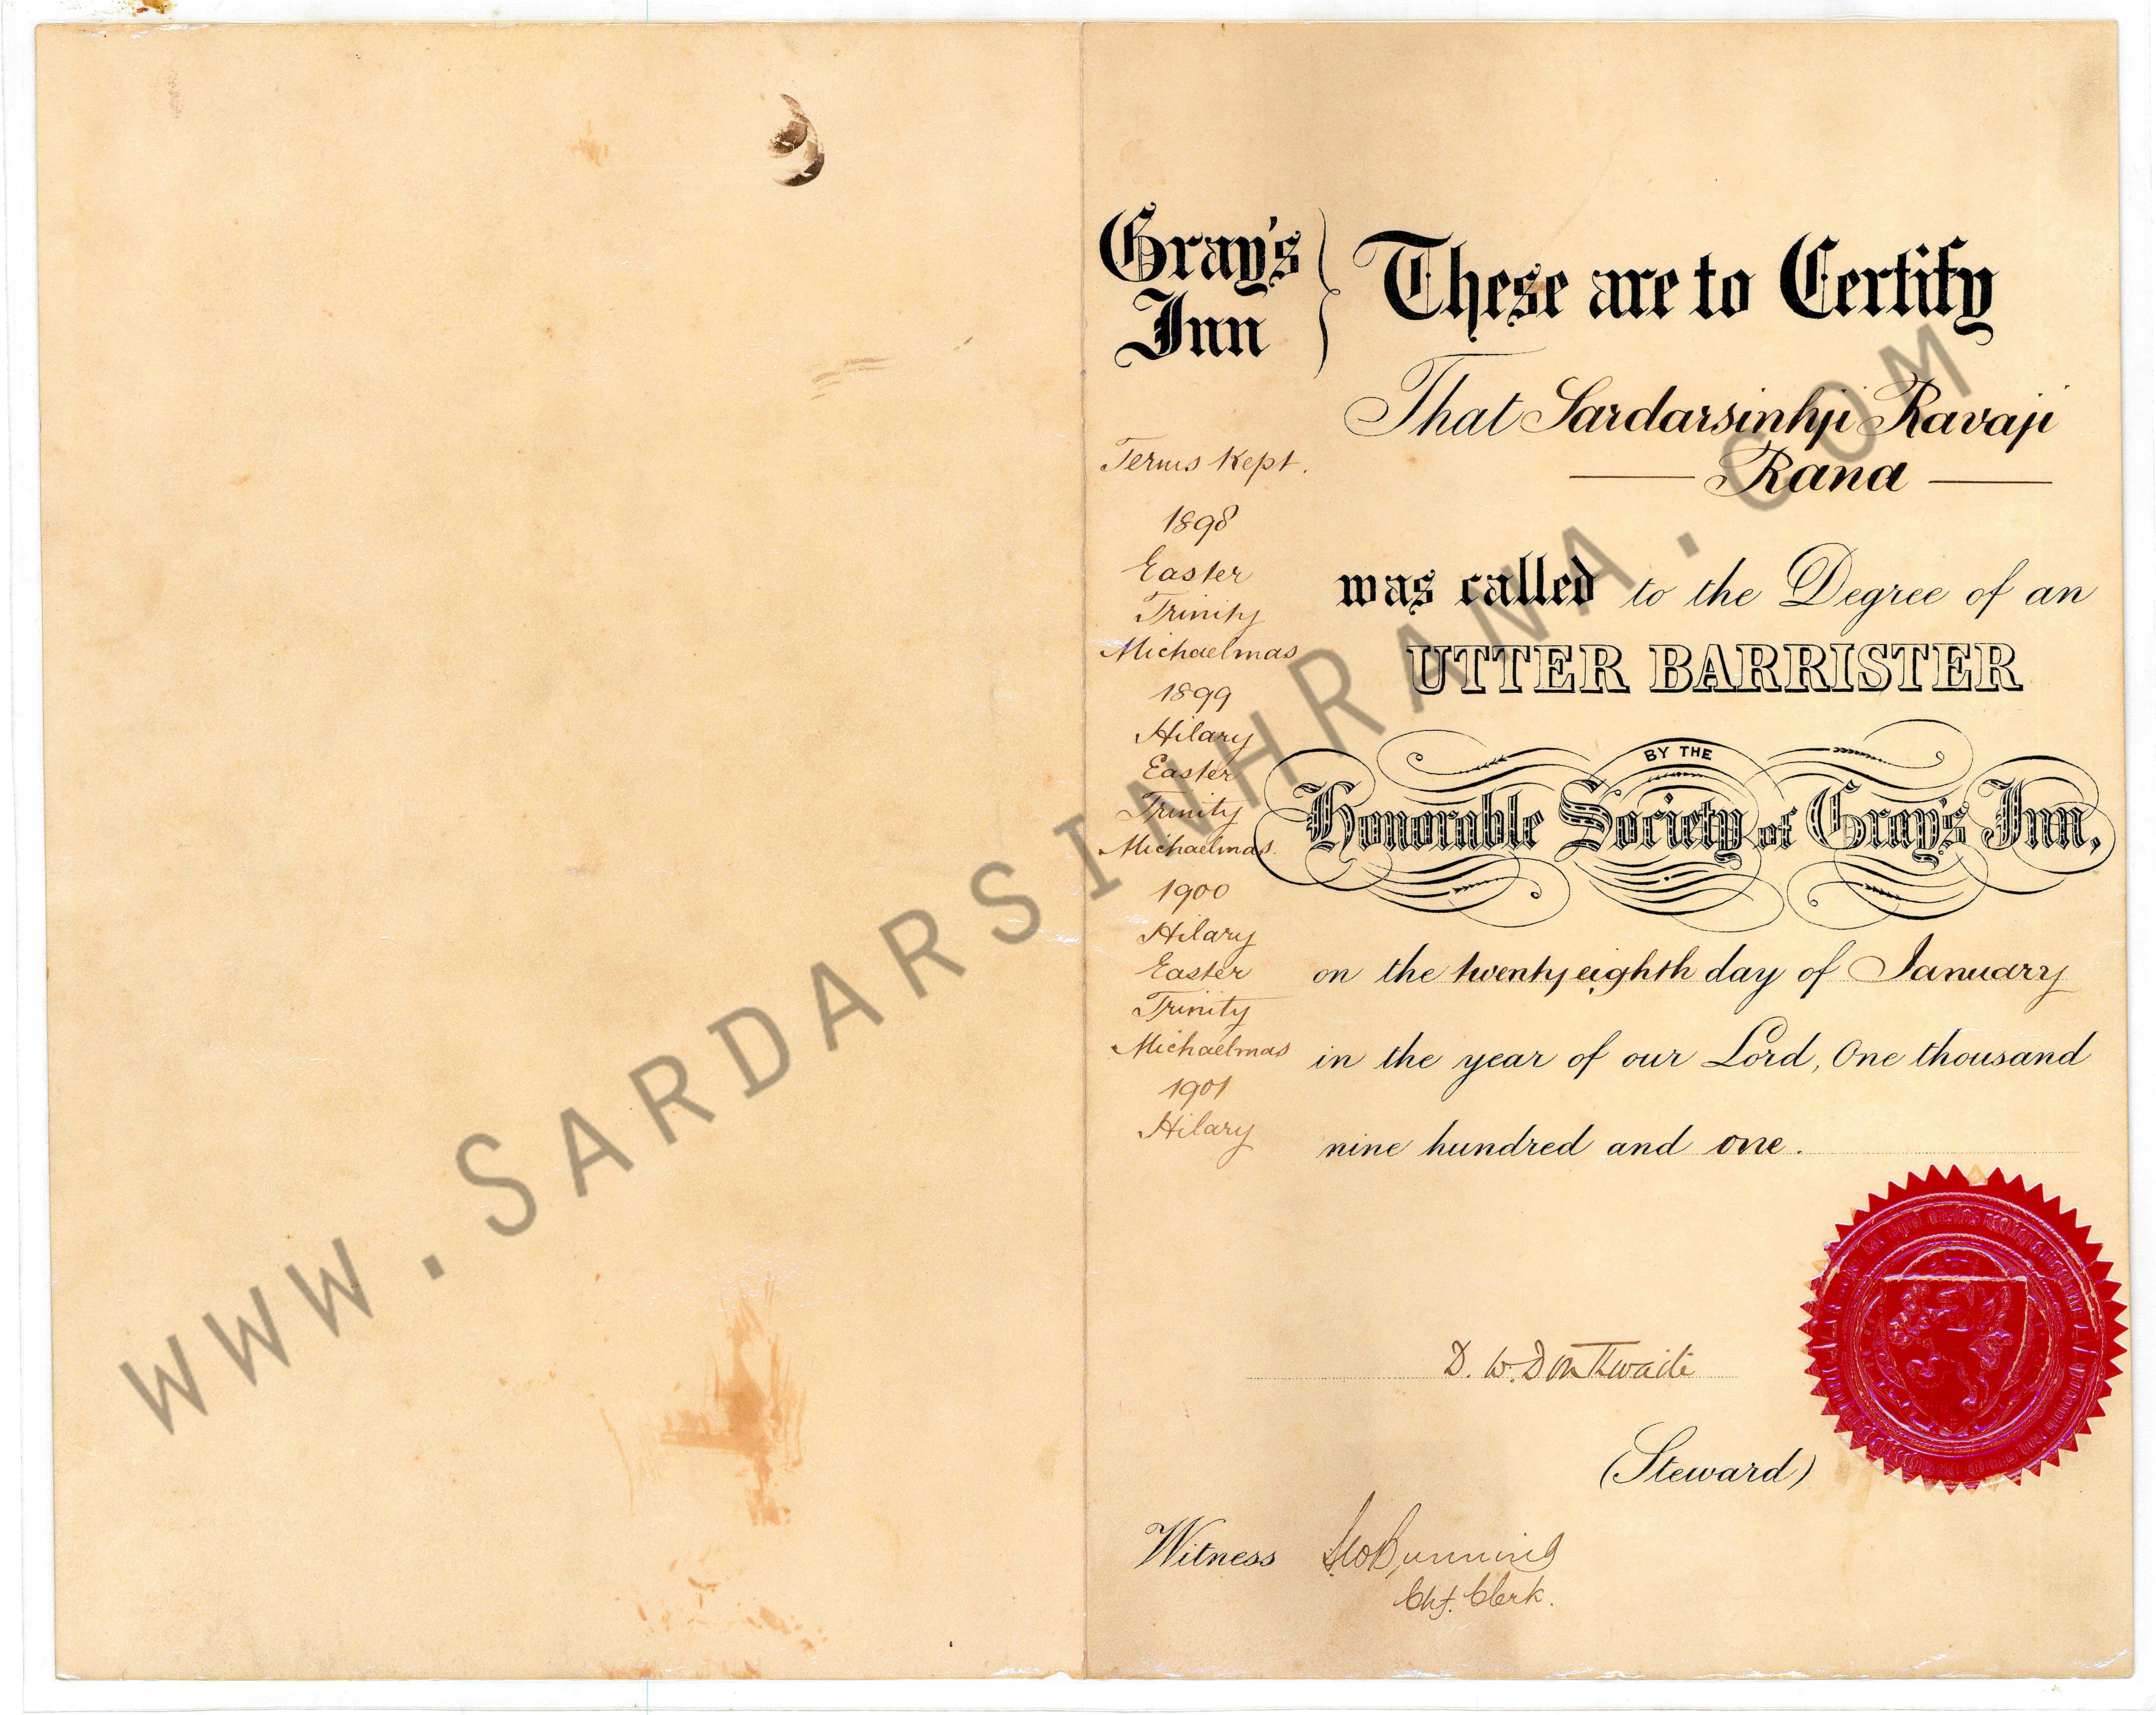 Gray's
Inn
These are to Certify
That Sardarsinhji Ravaji
Rana
was called to the Degree of an
UTTER BARRISTER
BY THE
Honorable Society of Gray's Inn,
on the twenty eighth day of January
in the year of our Lord, One thousand
nine hundred and one.
Terms Kept.
1898
Easter
Trinity
Michaelmas
1899
Hilary
Easter
Trinity
Michaelmas.
1900
Hilary
Easter
Trinity
Michaelmas
1901
Hilary
D. W. Douthwaite
(Steward)
Witness Bunning
Chf. Clerk.
WWW.SARDARSINHRANA.COM